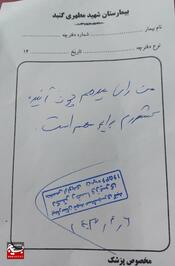 بیمارستان شهید مطهری گنبد
نام بیمار
شماره دفترچه
نوع دفترچه
تاریخ
۱۴
من رای میدهم چون آینده
کشورم برایم مهم است.
مخصوص پزشک